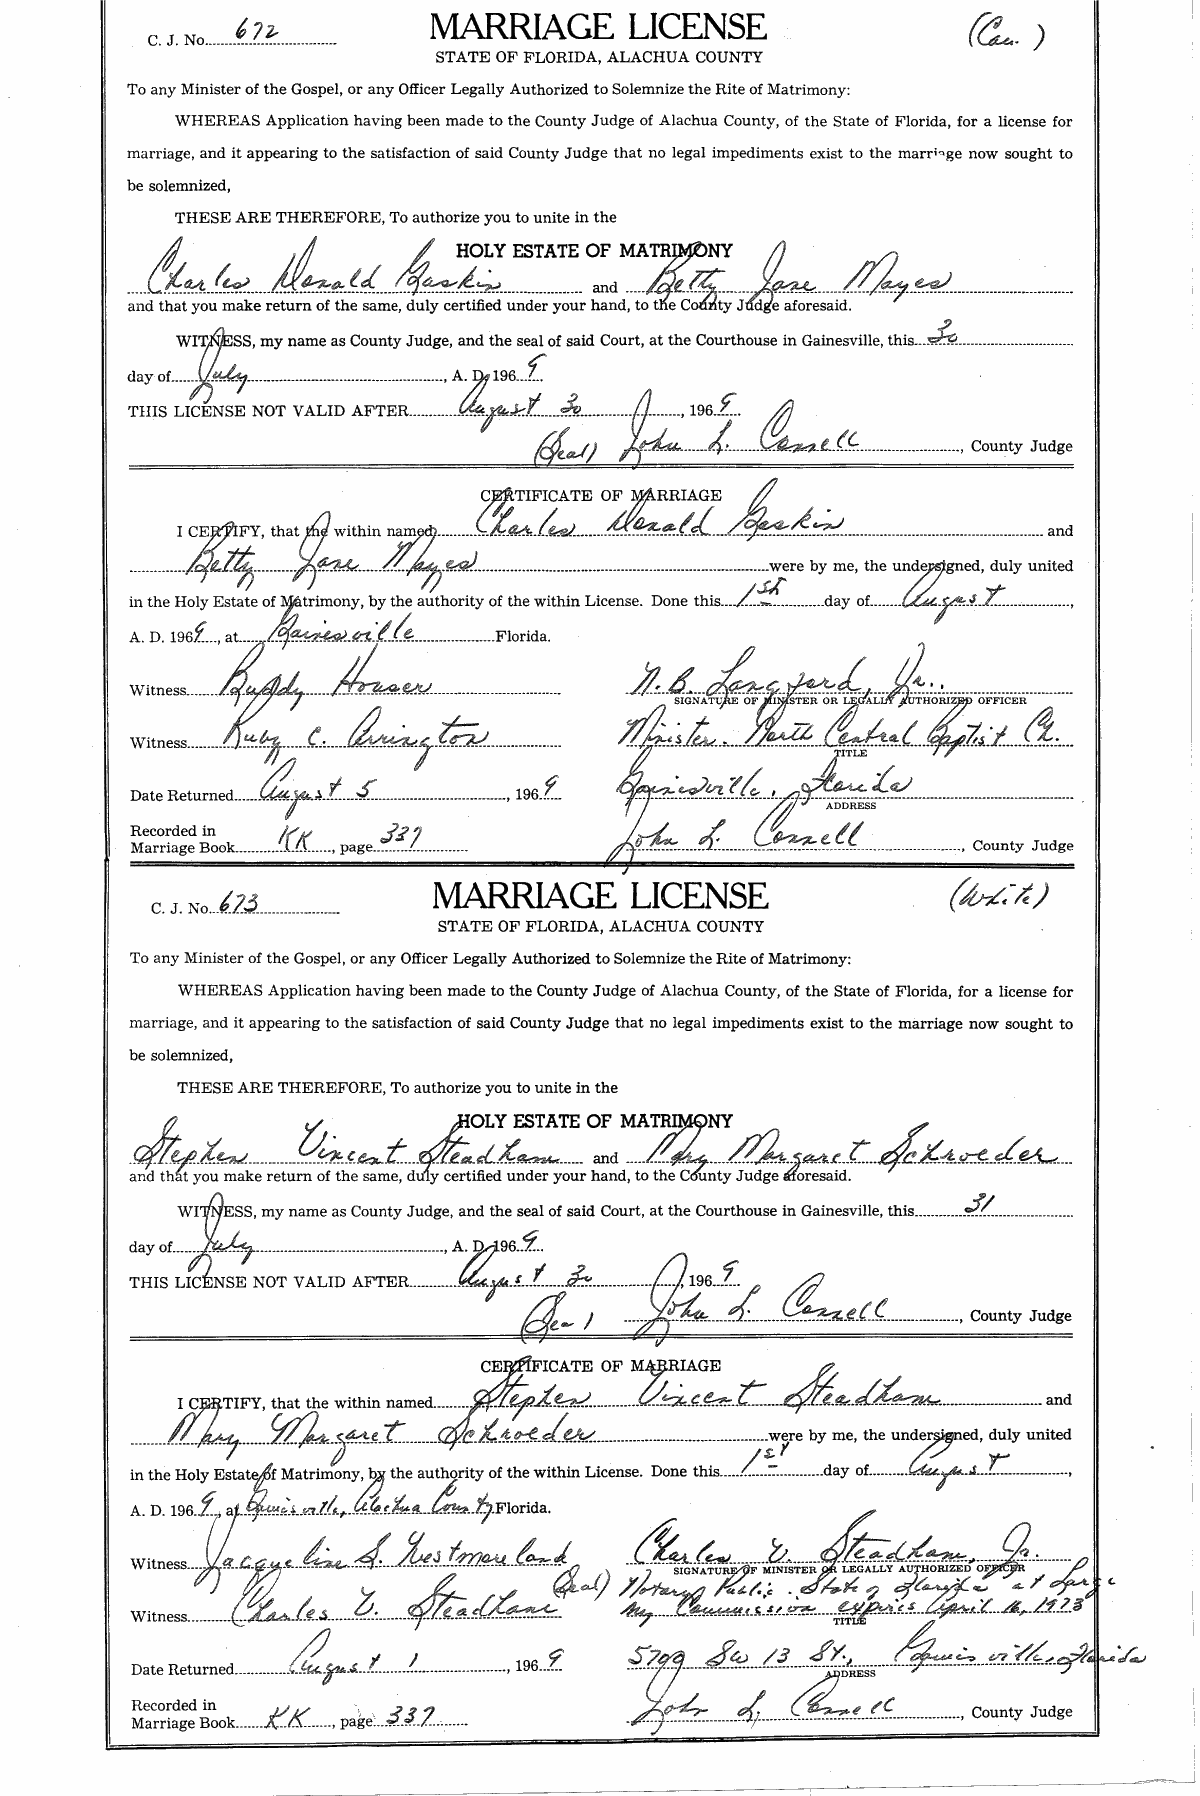 C. J. No. 672 MARRIAGE LICENSE (Cau. )
STATE OF FLORIDA, ALACHUA COUNTY
To any Minister of the Gospel, or any Officer Legally Authorized to Solemnize the Rite of Matrimony:
WHEREAS Application having been made to the County Judge of Alachua County, of the State of Florida, for a license for
marriage, and it appearing to the satisfaction of said County Judge that no legal impediments exist to the marriage now sought to
be solemnized,
THESE ARE THEREFORE, To authorize you to unite in the
HOLY ESTATE OF MATRIMONY
Charles Donald Gaskin and Betty Jane Mayes
and that you make return of the same, duly certified under your hand, to the County Judge aforesaid.
WITNESS, my name as County Judge, and the seal of said Court, at the Courthouse in Gainesville, this 30
day of July, A. D. 1969.
THIS LICENSE NOT VALID AFTER August 30, 1969.
(Seal) John L. Connell, County Judge
CERTIFICATE OF MARRIAGE
I CERTIFY, that the within named Charles Donald Gaskin and
Betty Jane Mayes were by me, the undersigned, duly united
in the Holy Estate of Matrimony, by the authority of the within License. Done this 1st day of August,
A. D. 1969, at Gainesville Florida.
Witness Buddy Houser N. B. Langford, Jr.
SIGNATURE OF MINISTER OR LEGALLY AUTHORIZED OFFICER
Witness Ruby C. Arrington Minister. North Central Baptist Ch.
TITLE
Date Returned August 5, 1969 Gainesville, Florida
ADDRESS
Recorded in
Marriage Book KK, page 337 John L. Connell, County Judge
C. J. No. 673 MARRIAGE LICENSE (White)
STATE OF FLORIDA, ALACHUA COUNTY
To any Minister of the Gospel, or any Officer Legally Authorized to Solemnize the Rite of Matrimony:
WHEREAS Application having been made to the County Judge of Alachua County, of the State of Florida, for a license for
marriage, and it appearing to the satisfaction of said County Judge that no legal impediments exist to the marriage now sought to
be solemnized,
THESE ARE THEREFORE, To authorize you to unite in the
HOLY ESTATE OF MATRIMONY
Stephen Vincent Steadham and Mary Margaret Schroeder
and that you make return of the same, duly certified under your hand, to the County Judge aforesaid.
WITNESS, my name as County Judge, and the seal of said Court, at the Courthouse in Gainesville, this 31
day of July, A. D. 1969.
THIS LICENSE NOT VALID AFTER August 30, 1969.
(Seal) John L. Connell, County Judge
CERTIFICATE OF MARRIAGE
I CERTIFY, that the within named Stephen Vincent Steadham and
Mary Margaret Schroeder were by me, the undersigned, duly united
in the Holy Estate of Matrimony, by the authority of the within License. Done this 1st day of August,
A. D. 1969, at Gainesville, Alachua County Florida.
Witness Jacqueline S. Westmoreland Charles V. Steadham, Jr.
SIGNATURE OF MINISTER OR LEGALLY AUTHORIZED OFFICER
(Seal) Notary Public. State of Florida at Large
Witness Charles V. Steadham My Commission expires April 16, 1973
TITLE
Date Returned August 1, 1969 5799 SW 13 St., Gainesville, Florida
ADDRESS
Recorded in
Marriage Book KK, page 337 John L. Connell, County Judge